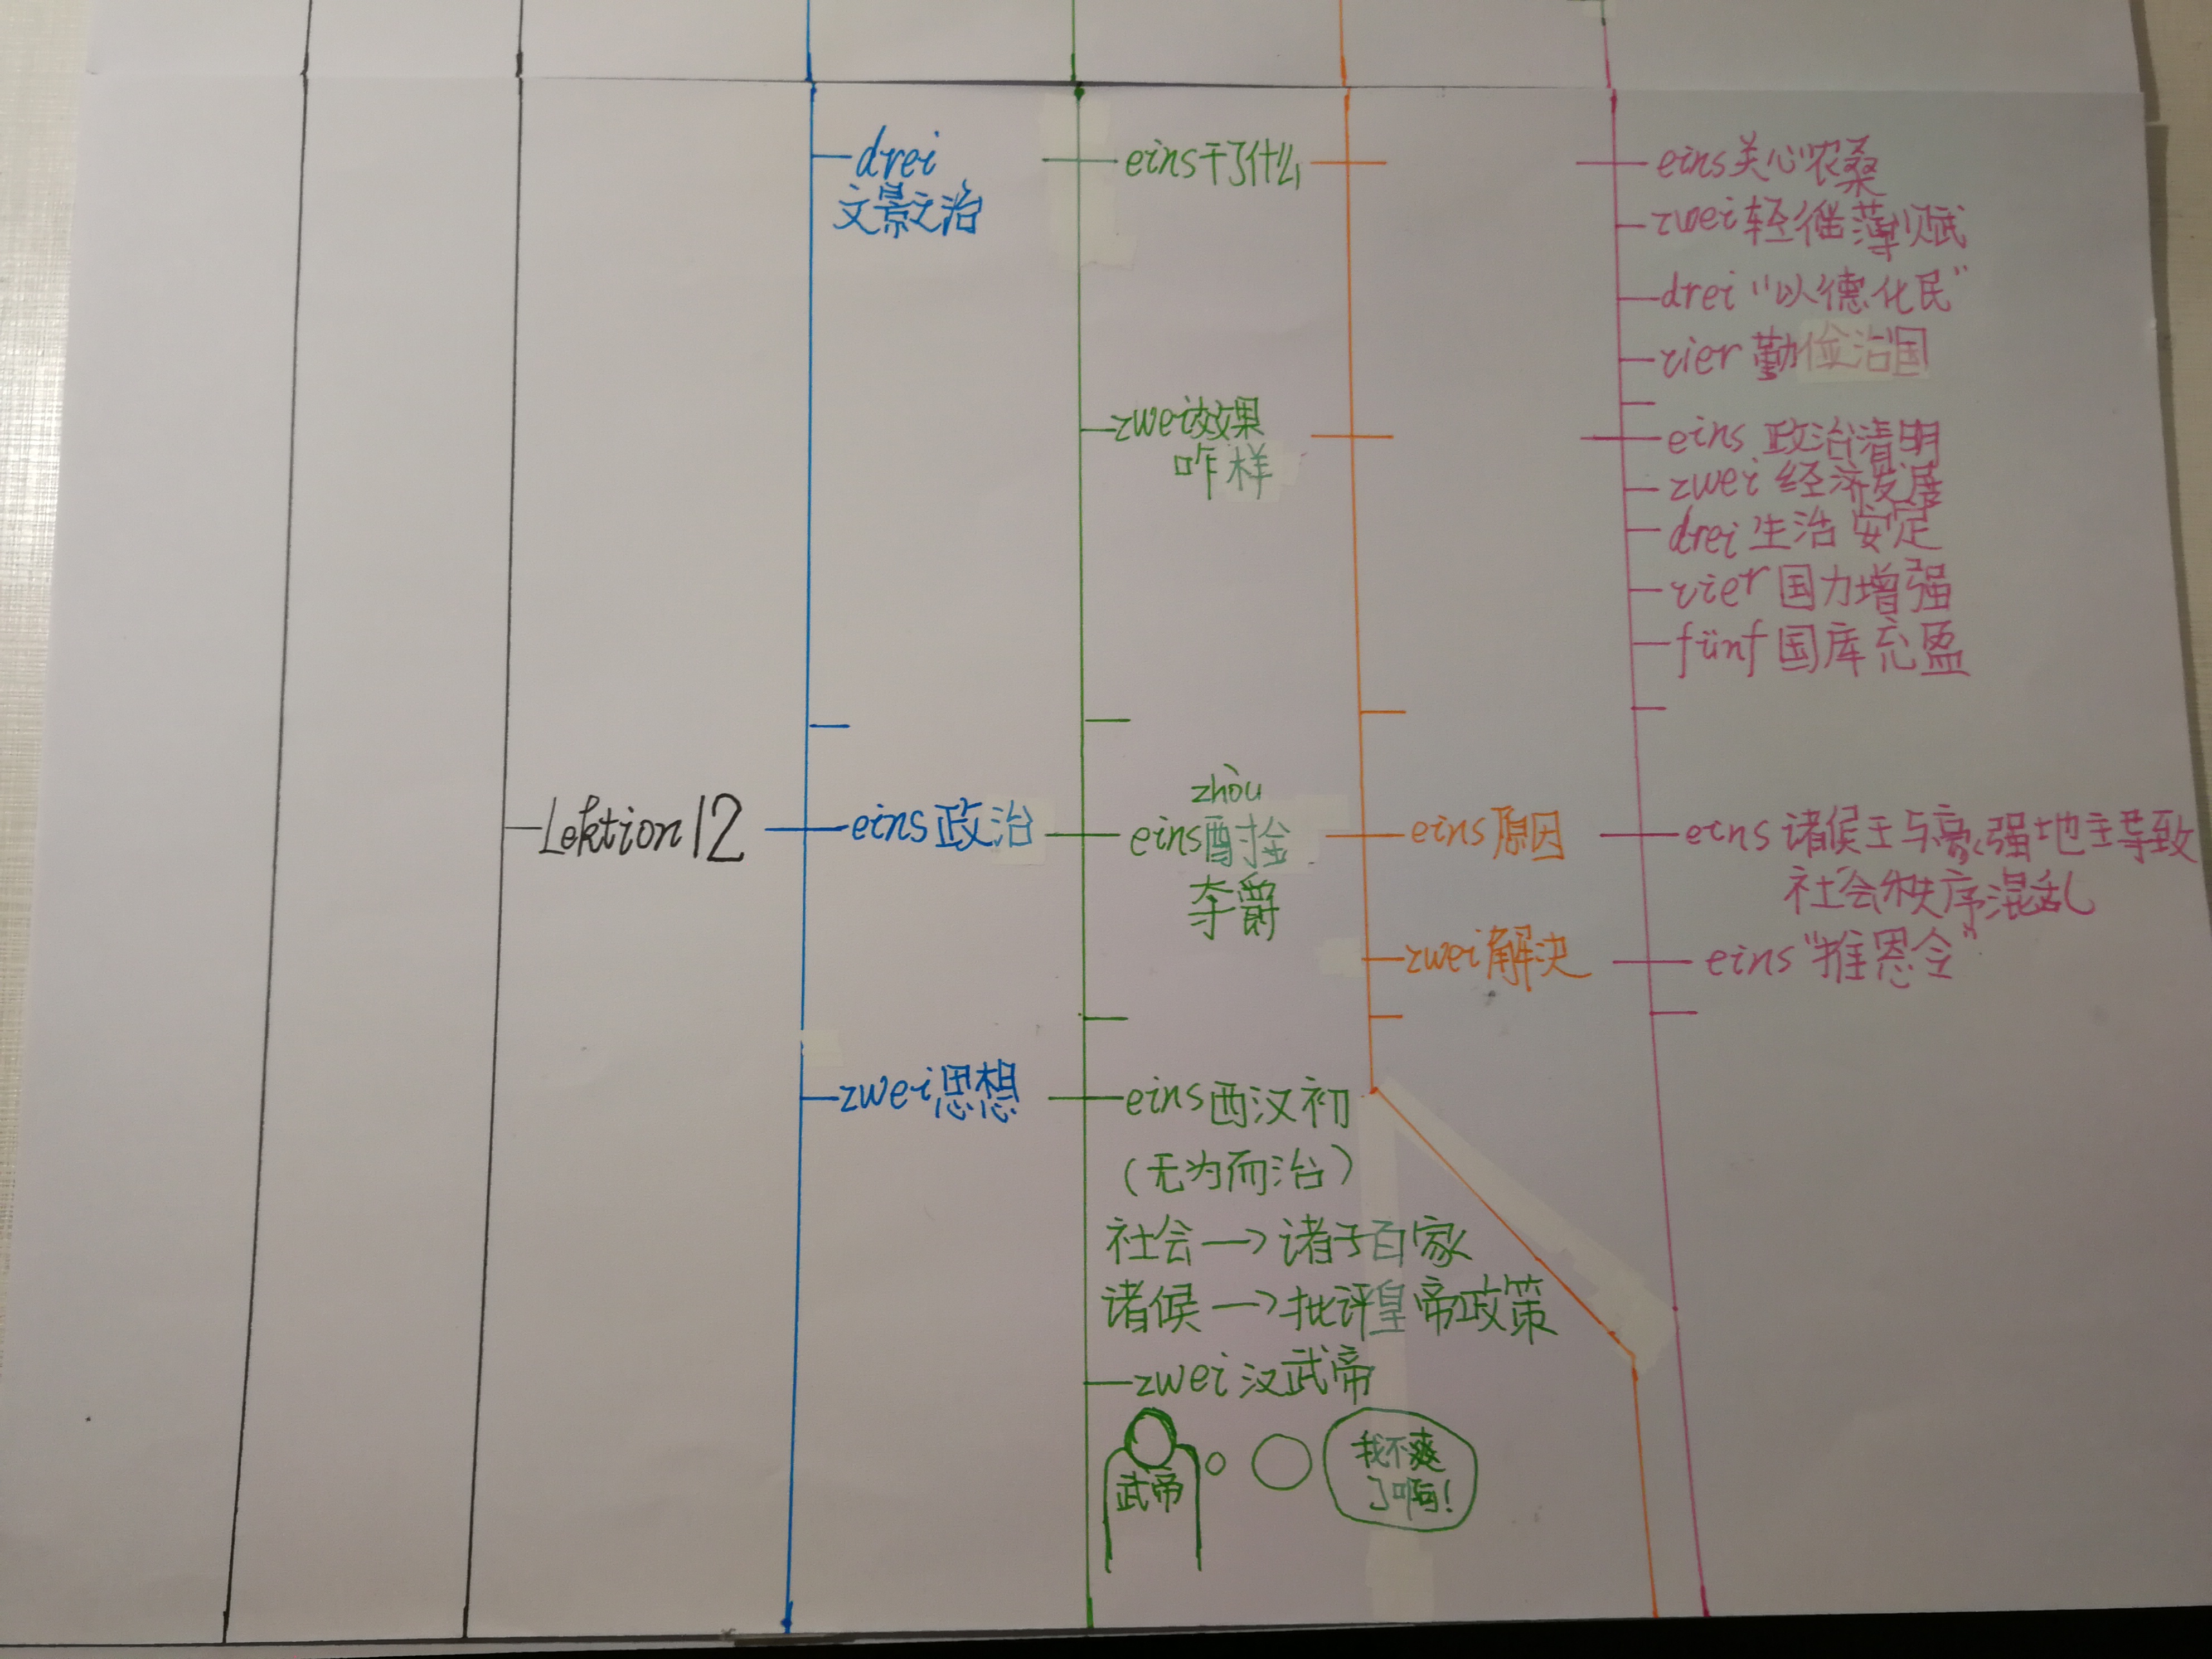 drei
文景之治
eins干了什么
eins关心农桑
zwei轻徭薄赋
drei“以德化民”
vier勤俭治国
zwei效果
咋样
eins政治清明
zwei经济发展
drei生活安定
vier国力增强
fünf国库充盈
Lektion12
eins政治
zhòu
eins酎金
夺爵
eins原因
eins诸候王与豪强地主导致
社会秩序混乱
zwei解决
eins“推恩令”
zwei思想
eins西汉初
（无为而治）
社会→诸子百家
诸候→批评皇帝政策
zwei汉武帝
武帝
我不爽
了啊！